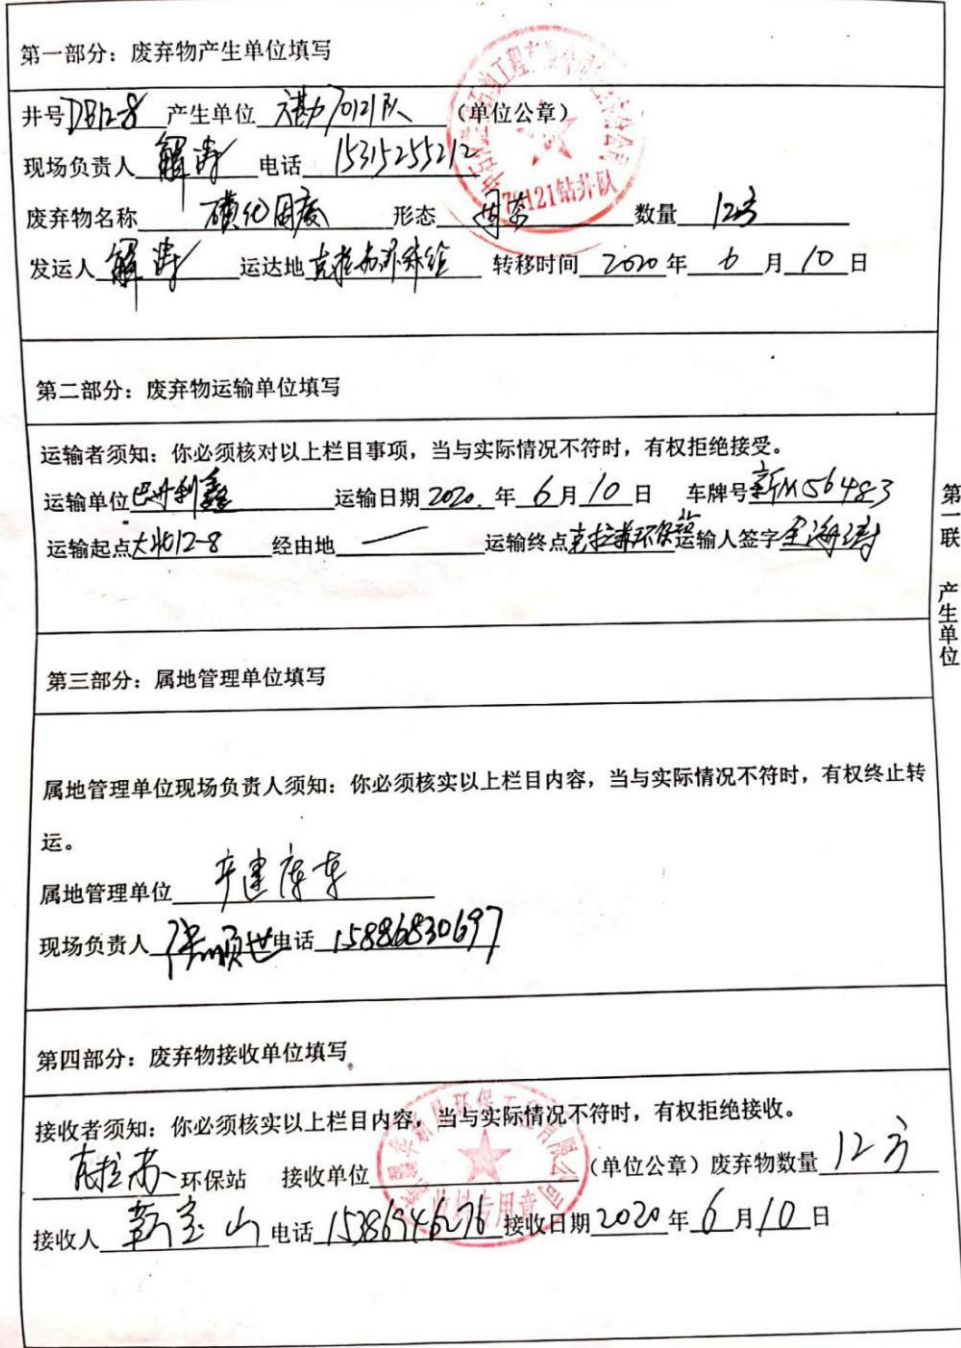 第一部分：废弃物产生单位填写
井号DB12-8 产生单位 70121队 （单位公章）
现场负责人 解涛 电话 15315255212
废弃物名称 磺化固废 形态 固态 数量 12方
发运人 解涛 运达地 克拉苏环保站 转移时间 2020 年 6 月 10 日
70121钻井队
第二部分：废弃物运输单位填写
运输者须知：你必须核对以上栏目事项，当与实际情况不符时，有权拒绝接受。
运输单位巴州利鑫 运输日期 2020. 年 6 月 10 日 车牌号 新M56483
运输起点大北12-8 经由地 — 运输终点克拉苏环保站运输人签字 海涛
第三部分：属地管理单位填写
属地管理单位现场负责人须知：你必须核实以上栏目内容，当与实际情况不符时，有权终止转
运。
属地管理单位 库车
现场负责人 张顺世 电话 15886830697
第四部分：废弃物接收单位填写
接收者须知：你必须核实以上栏目内容，当与实际情况不符时，有权拒绝接收。
克拉苏 环保站 接收单位 （单位公章）废弃物数量 12方
接收人 靳宝山 电话 15386946276 接收日期 2020 年 6 月 10 日
第一联 产生单位